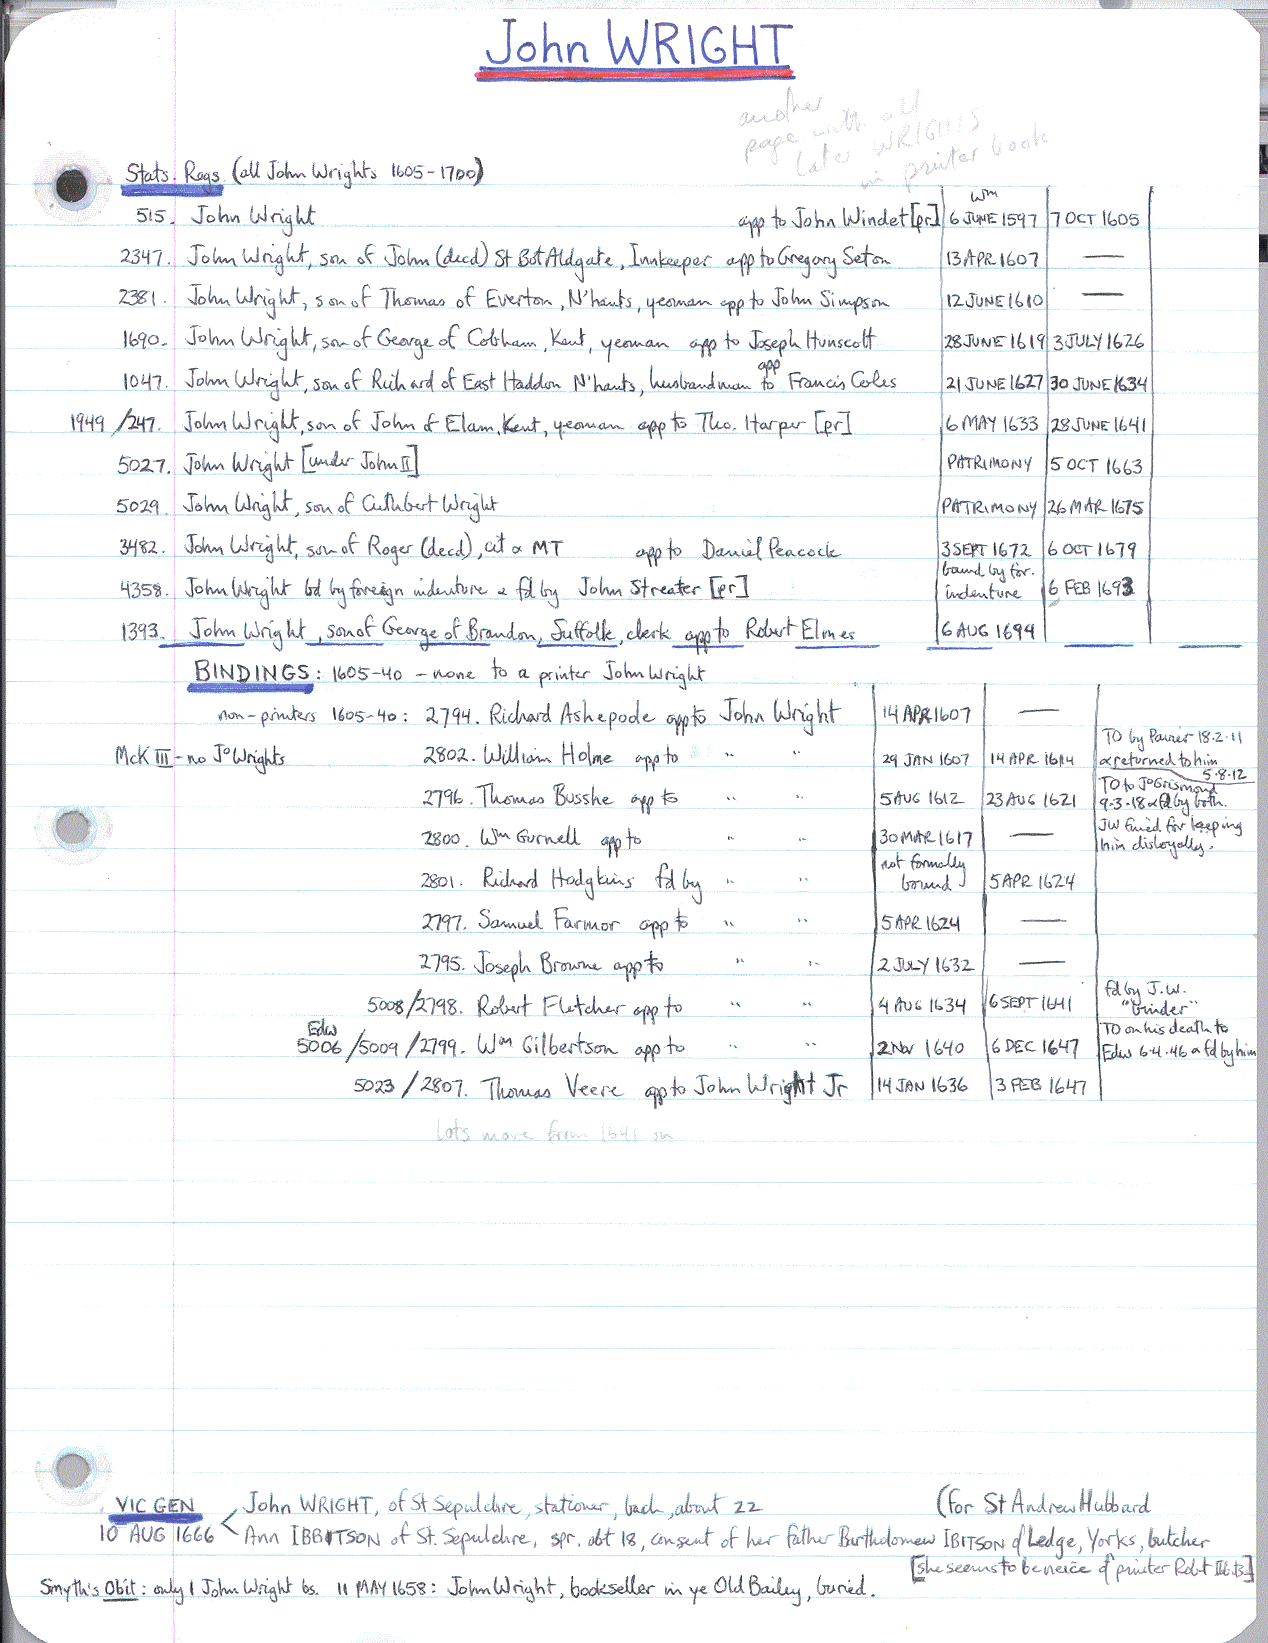 John WRIGHT
another
page with all
later WRIGHTS
in printer book
Stats. Regs (all John Wrights 1605-1700)
Wm
515. John Wright app to John Windet [pr] 6 JUNE 1597 7 OCT 1605
2347. John Wright, son of John (decd) St Bot Aldgate, Innkeeper app to Gregory Seton 13 APR 1607 —
2381. John Wright, son of Thomas of Everton, N'hants, yeoman app to John Simpson 12 JUNE 1610 —
1690. John Wright, son of George of Cobham, Kent, yeoman app to Joseph Hunscott 28 JUNE 1619 3 JULY 1626
1047. John Wright, son of Richard of East Haddon N'hants, husbandman app to Francis Coles 21 JUNE 1627 30 JUNE 1634
1949 /247. John Wright, son of John of Elam, Kent, yeoman app to Tho. Harper [pr] 6 MAY 1633 28 JUNE 1641
5027. John Wright [under John II] PATRIMONY 5 OCT 1663
5029. John Wright, son of Cuthbert Wright PATRIMONY 26 MAR 1675
3482. John Wright, son of Roger (decd), cit & MT app to Daniel Peacock 3 SEPT 1672 6 OCT 1679
4358. John Wright bd by foreign indenture & fd by John Streater [pr] bound by for. indenture 6 FEB 1693
1393. John Wright, son of George of Brandon, Suffolk, clerk app to Robert Elmes 6 AUG 1694
BINDINGS: 1605-40 - none to a printer John Wright
non-printers 1605-40: 2794. Richard Ashepode app to John Wright 14 APR 1607 —
McK III - no Jo Wrights 2802. William Holme app to " " 29 JAN 1607 14 APR 1614 TO by Pavier 18.2.11 & returned to him 5.8.12
2796. Thomas Busshe app to " " 5 AUG 1612 23 AUG 1621 TO to Jo Grismond 9-3-18 & fd by both.
2800. Wm Gurnell app to " " 30 MAR 1617 — JW fined for keeping him disloyally.
2801. Richard Hodgkins fd by " " not formally bound 5 APR 1624
2797. Samuel Farmor app to " " 5 APR 1624 —
2795. Joseph Browne app to " " 2 JULY 1632 —
5008/2798. Robert Fletcher app to " " 4 AUG 1634 6 SEPT 1641 fd by J.W. "binder"
Edw
5006 /5009 /2799. Wm Gilbertson app to " " 2 NOV 1640 6 DEC 1647 TO on his death to Edw 6.4.46 & fd by him
5023 / 2807. Thomas Veere app to John Wright Jr 14 JAN 1636 3 FEB 1647
lots more from 1641 on
VIC GEN John WRIGHT, of St Sepulchre, stationer, bach, about 22 (for St Andrew Hubbard
10 AUG 1666 Ann IBBITSON of St. Sepulchre, spr. abt 18, consent of her father Bartholomew IBITSON of Ledge, Yorks, butcher
[she seems to be neice of printer Robt Ibb'ts]
Smyth's Obit: only 1 John Wright bs. 11 MAY 1658: John Wright, bookseller in ye Old Bailey, buried.